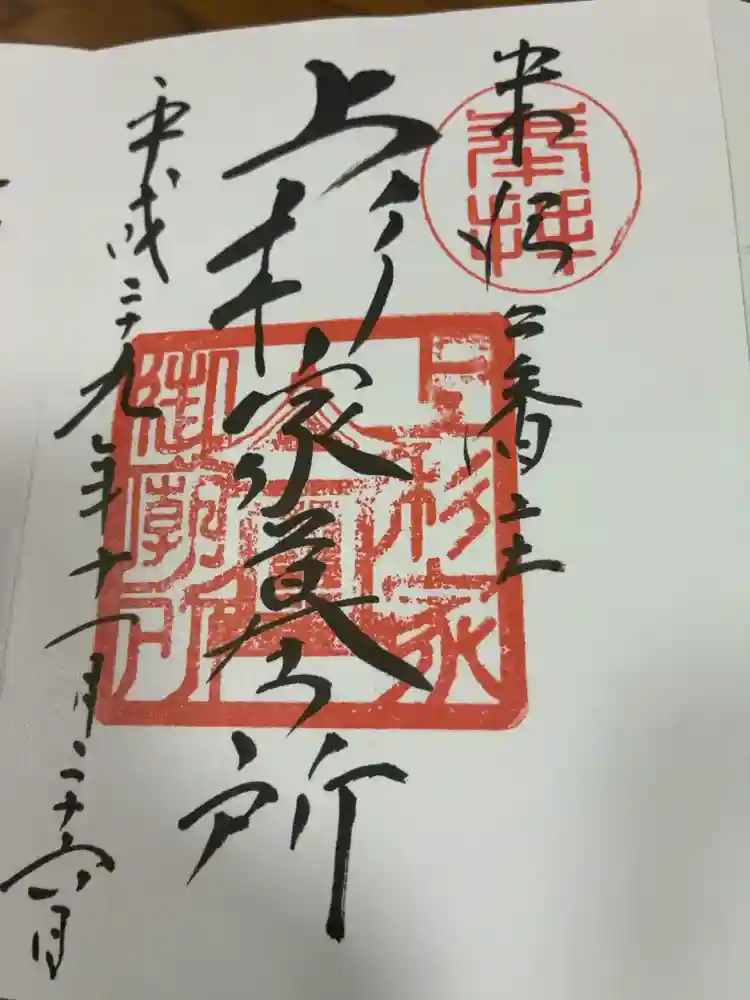 奉拝
米澤藩主
上杉家墓所
平成二十九年十一月二十六日
上杉家
御廟所